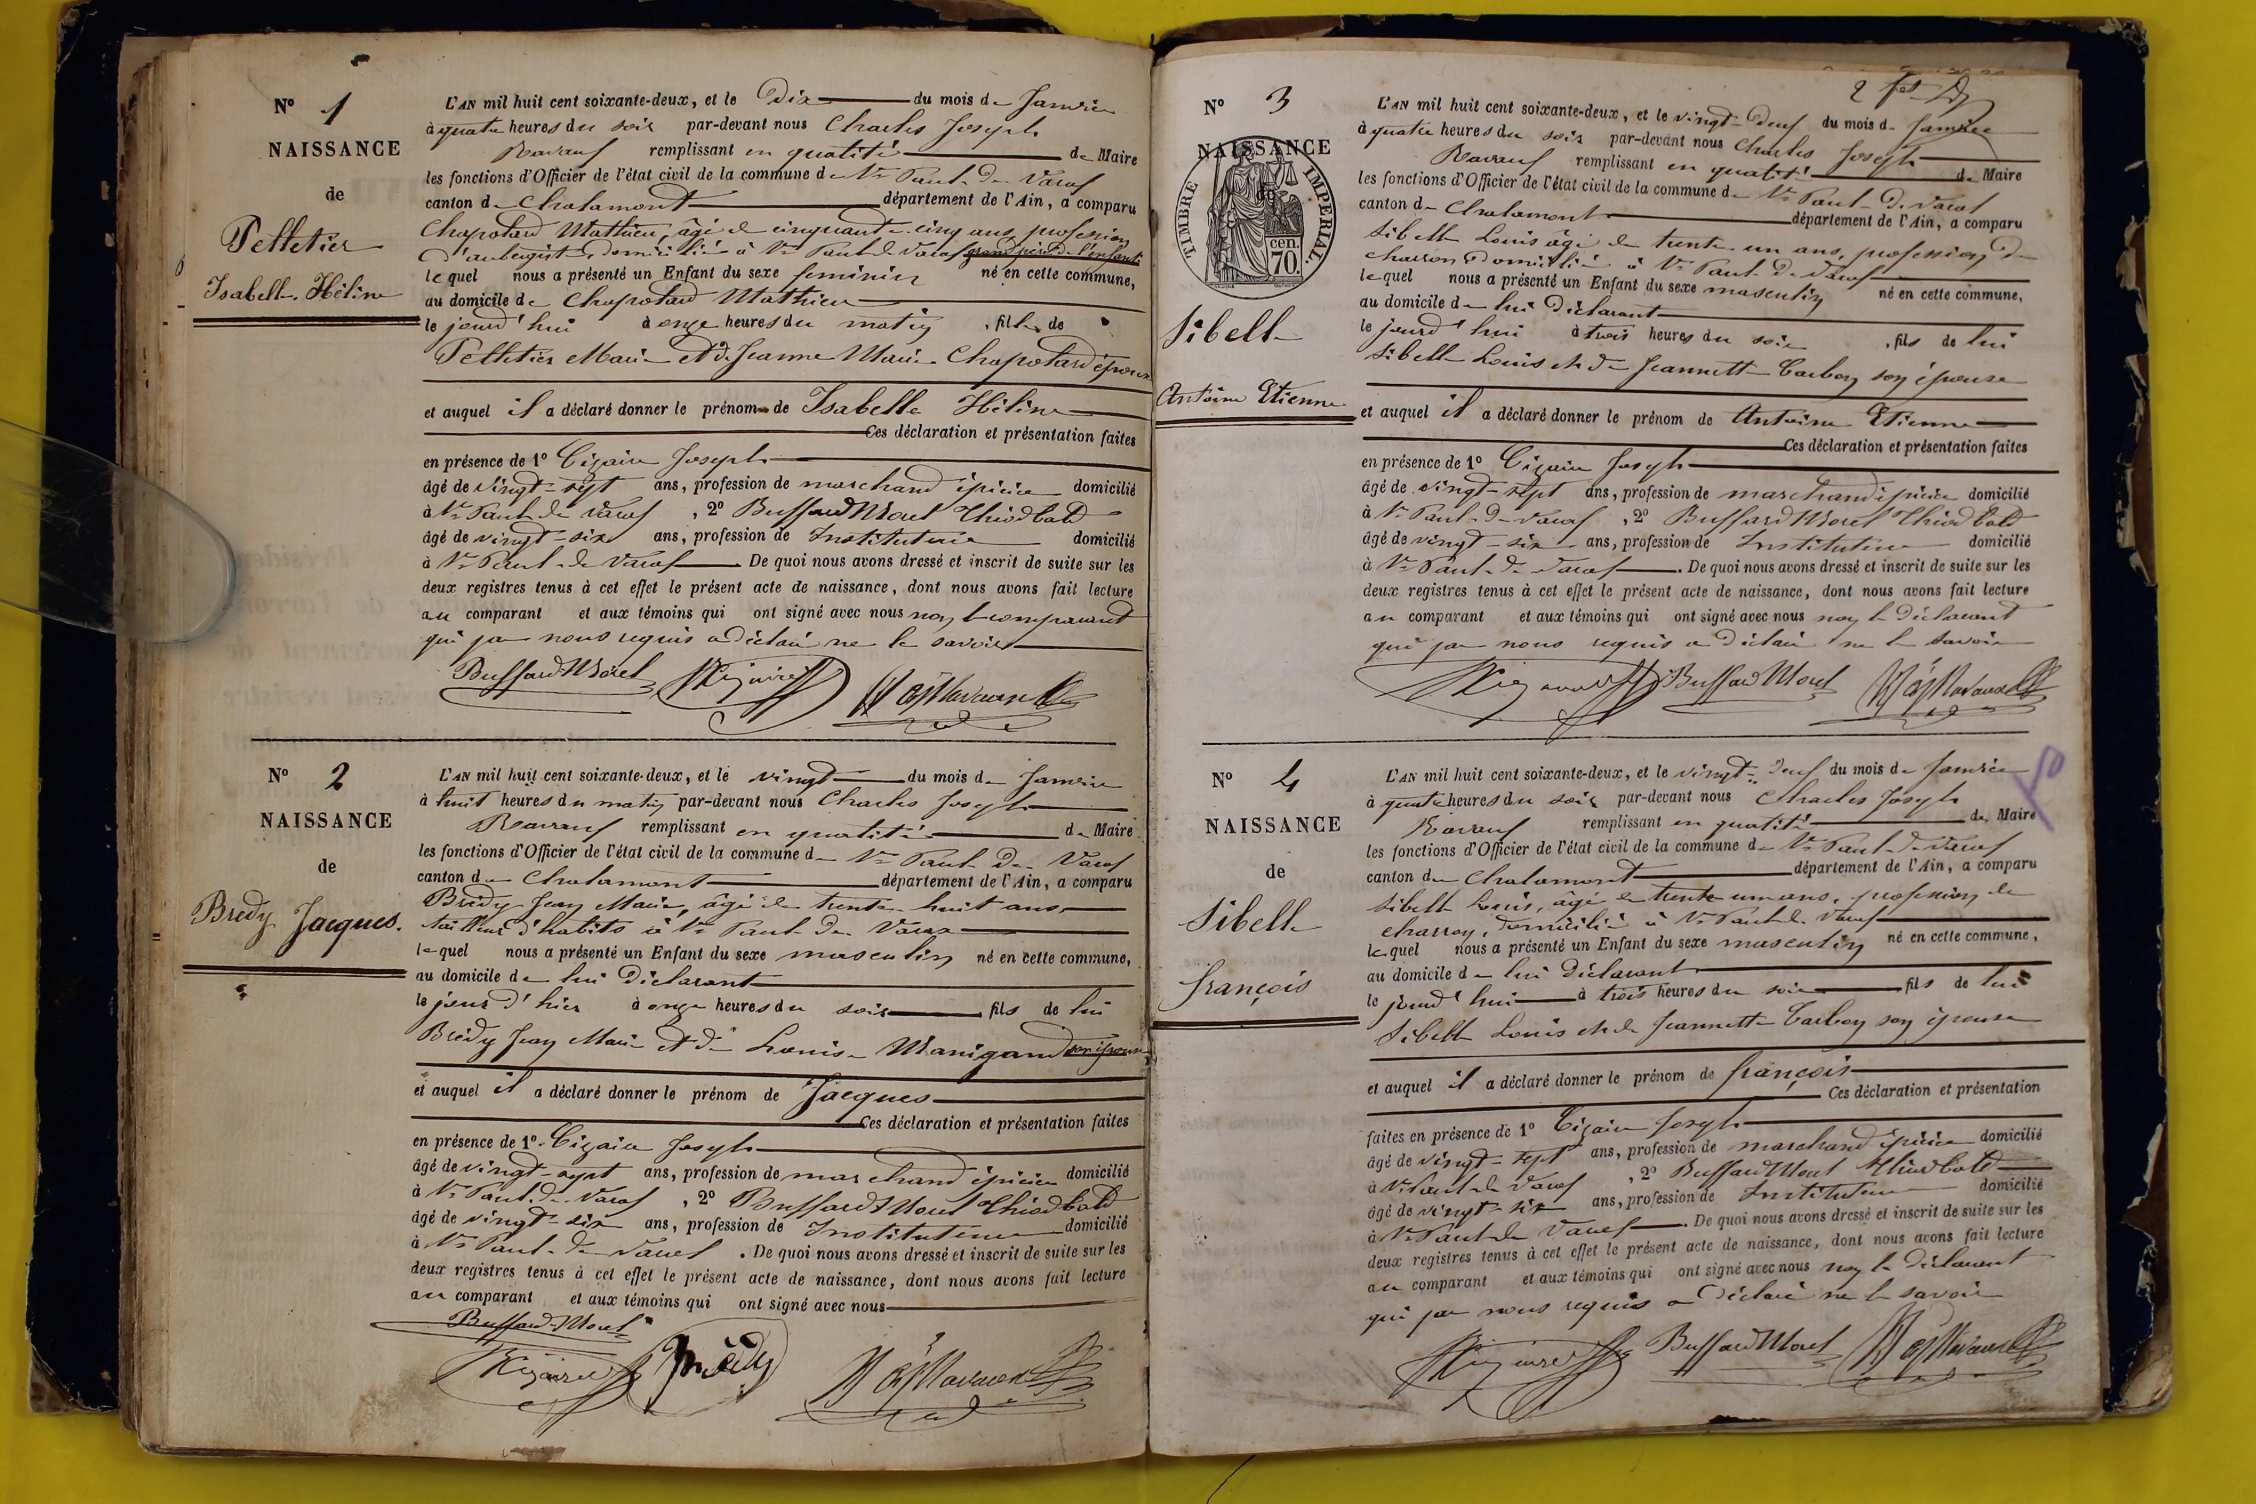 N° 1
NAISSANCE
de
Pelletier
Isabelle Hélène
L'AN mil huit cent soixante-deux, et le Dix du mois de Janvier
à quatre heures du soir par-devant nous Charles Joseph
Ravaux remplissant en qualité de Maire
les fonctions d'Officier de l'état civil de la commune de St Paul de Varax
canton de Chalamont département de l'Ain, a comparu
Chapotard Mathieu, âgé de cinquante cinq ans, profession
d'aubergiste, domicilié à St Paul de Varax grand père de l'enfant
lequel nous a présenté un Enfant du sexe feminin né en cette commune,
au domicile de Chapotard Mathieu
le jourd'hui à onze heures du matin , fille de
Pelletier Marie et de Jeanne Marie Chapotard épouse
et auquel il a déclaré donner le prénom de Isabelle Hélène
Ces déclaration et présentation faites
en présence de 1° Cizaire Joseph
âgé de vingt-sept ans, profession de marchand épicier domicilié
à St Paul de Varax , 2° Buffard Morel Thiodbald
âgé de vingt-six ans, profession de Instituteur domicilié
à St Paul de Varax . De quoi nous avons dressé et inscrit de suite sur les
deux registres tenus à cet effet le présent acte de naissance, dont nous avons fait lecture
au comparant et aux témoins qui ont signé avec nous non le comparant
qui par nous requis a déclaré ne le savoir
Buffard Morel
N° 2
NAISSANCE
de
Brédy Jacques.
L'AN mil huit cent soixante-deux, et le vingt du mois de Janvier
à huit heures du matin par-devant nous Charles Joseph
Ravaux remplissant en qualité de Maire
les fonctions d'Officier de l'état civil de la commune de St Paul de Varax
canton de Chalamont département de l'Ain, a comparu
Brédy Jean Marie, âgé de trente huit ans
tailleur d'habits à St Paul de Varax
lequel nous a présenté un Enfant du sexe masculin né en cette commune,
au domicile de lui Déclarant
le jour d'hier à onze heures du soir fils de lui
Brédy Jean Marie et de Louise Manigand son épouse
et auquel il a déclaré donner le prénom de Jacques
Ces déclaration et présentation faites
en présence de 1° Cizaire Joseph
âgé de vingt-sept ans, profession de marchand épicier domicilié
à St Paul de Varax , 2° Buffard Morel Thiodbald
âgé de vingt-six ans, profession de Instituteur domicilié
à St Paul de Varax . De quoi nous avons dressé et inscrit de suite sur les
deux registres tenus à cet effet le présent acte de naissance, dont nous avons fait lecture
au comparant et aux témoins qui ont signé avec nous
Buffard Morel
Brédy
N° 3
NAISSANCE
de
TIMBRE IMPERIAL
70 cen.
Sibelle
Antoine Etienne
L'AN mil huit cent soixante-deux, et le vingt-deux du mois de Janvier
à quatre heures du soir par-devant nous Charles Joseph
Ravaux remplissant en qualité de Maire
les fonctions d'Officier de l'état civil de la commune de St Paul de Varax
canton de Chalamont département de l'Ain, a comparu
Sibelle Louis âgé de trente un ans, profession de
charron domicilié à St Paul de Varax
lequel nous a présenté un Enfant du sexe masculin né en cette commune,
au domicile de lui Déclarant
le jourd'hui à trois heures du soir , fils de lui
Sibelle Louis et de Jeannette Carbon son épouse
et auquel il a déclaré donner le prénom de Antoine Etienne
Ces déclaration et présentation faites
en présence de 1° Cizaire Joseph
âgé de vingt-sept ans, profession de marchand épicier domicilié
à St Paul de Varax , 2° Buffard Morel Thiodbald
âgé de vingt-six ans, profession de Instituteur domicilié
à St Paul de Varax . De quoi nous avons dressé et inscrit de suite sur les
deux registres tenus à cet effet le présent acte de naissance, dont nous avons fait lecture
au comparant et aux témoins qui ont signé avec nous non le déclarant
qui par nous requis a déclaré ne le savoir
Buffard Morel
N° 4
NAISSANCE
de
Sibelle
françois
L'AN mil huit cent soixante-deux, et le vingt-deux du mois de Janvier
à quatre heures du soir par-devant nous Charles Joseph
Ravaux remplissant en qualité de Maire
les fonctions d'Officier de l'état civil de la commune de St Paul de Varax
canton de Chalamont département de l'Ain, a comparu
Sibelle Louis, âgé de trente un ans, profession de
charron, domicilié à St Paul de Varax
lequel nous a présenté un Enfant du sexe masculin né en cette commune,
au domicile de lui Déclarant
le jourd'hui à trois heures du soir fils de lui
Sibelle Louis et de Jeannette Carbon son épouse
et auquel il a déclaré donner le prénom de françois
Ces déclaration et présentation
faites en présence de 1° Cizaire Joseph
âgé de vingt-sept ans, profession de marchand épicier domicilié
à St Paul de Varax , 2° Buffard Morel Thiodbald
âgé de vingt-six ans, profession de Instituteur domicilié
à St Paul de Varax . De quoi nous avons dressé et inscrit de suite sur les
deux registres tenus à cet effet le présent acte de naissance, dont nous avons fait lecture
au comparant et aux témoins qui ont signé avec nous non le déclarant
qui par nous requis a déclaré ne le savoir
Buffard Morel